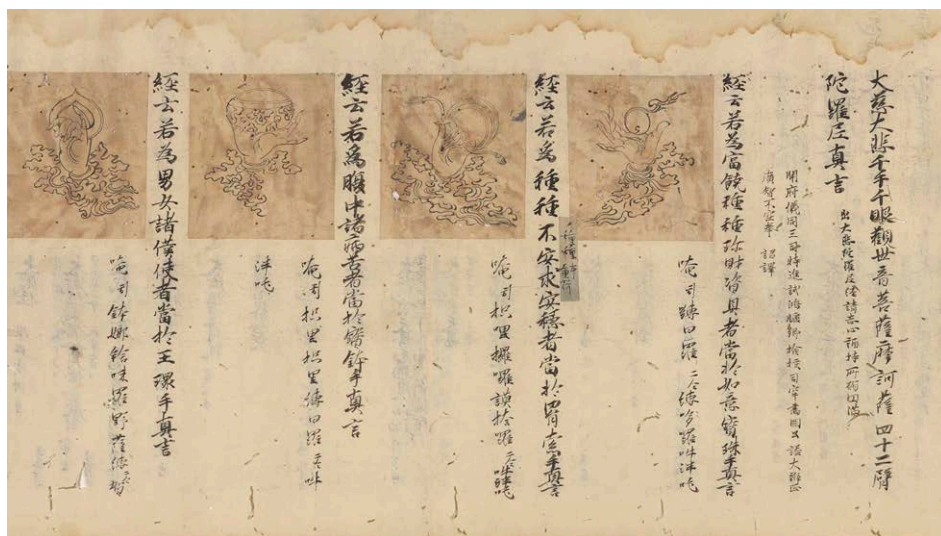 大慈大悲千手千眼觀世音菩薩摩訶薩四十二臂
陀羅尼真言 出大悲陀羅尼經請志心誦持所
開府儀同三司特進試鴻臚卿檢校司空肅國公謚大辯正
廣智不空奉 詔譯
經云若為富饒種種珍財資具者當於如意寶珠手真言
唵引嚩曰羅二合嚩哆羅吽泮吒
經云若為種種不安求安穩者當於罥索手真言
唵引枳里攞囉謨捺囉二合吽泮吒
經云若為腹中諸病苦者當於寶鉢手真言
唵引枳里枳里嚩曰羅二合吽
泮吒
經云若為男女諸僕使者當於玉環手真言
唵引鉢娜味羅野薩